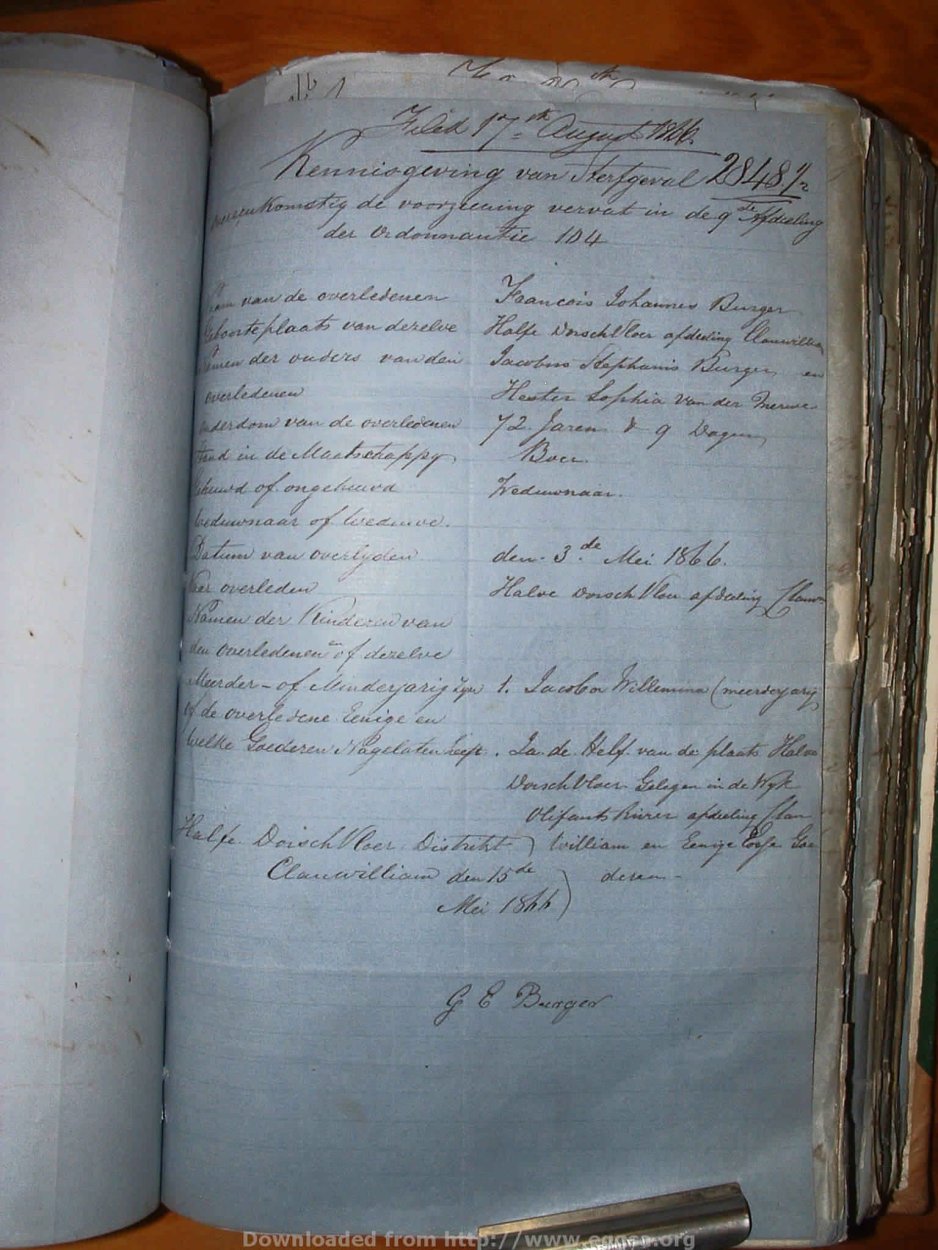 Filed 17th August 1866.
Kennisgeving van Sterfgeval 2848
overeenkomstig de voorziening vervat in de 9de Afdeeling
der Ordonnantie 104
Naam van de overledenen Francois Johannes Burger
Geboorteplaats van dezelve Halfe Dorsch Vloer afdeeling Clanwilliam
Namen der ouders van den Jacobus Stephanus Burger en
overledenen Hester Sophia Van der Merwe
Ouderdom van de overledenen 72 Jaren & 9 Dagen
Stand in de Maatschappy Boer
Gehuwd of ongehuwd Weduwnaar.
Weduwnaar of Weduwe.
Datum van overlyden den 3de Mei 1866.
Waar overleden Halve Dorsch Vloer afdeeling Clanw
Namen der Kinderen van
den overledenen of dezelve
Meerder- of Minderjarig zyn 1. Jacoba Willemina (meerderjarig
of de overledene Eenige en
Welke Goederen Nagelaten heeft. Ja de Helf van de plaats Halve
Dorsch Vloer Gelegen in de Wyk
Olifants Rivier afdeeling Clan
Halfe Dorsch Vloer Distrikt ) william en Eenige Losse Goe
Clanwilliam den 15de ) deren
Mei 1866 )
G E Burger
Downloaded from http://www.eggsa.org